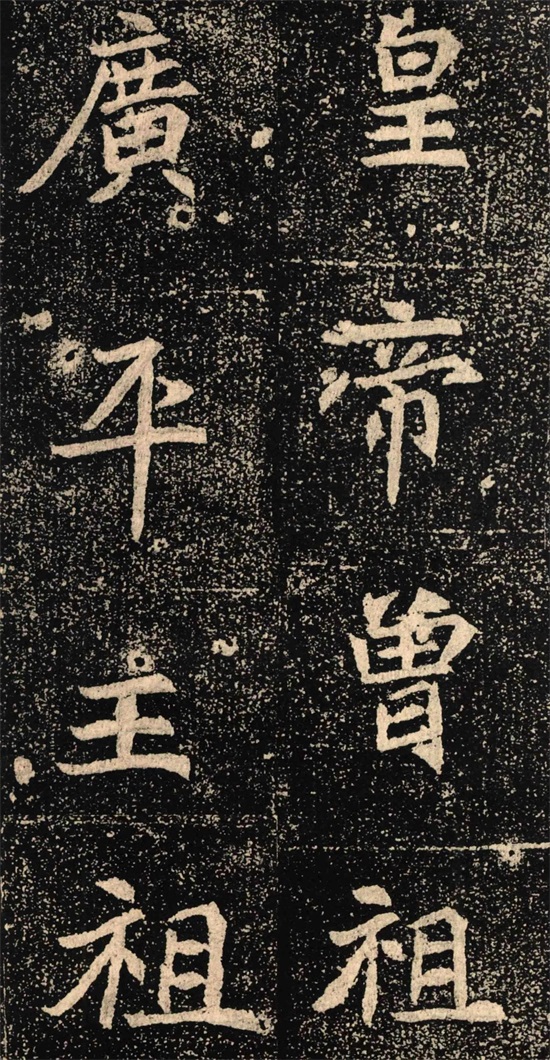 皇帝曾祖
廣平王祖